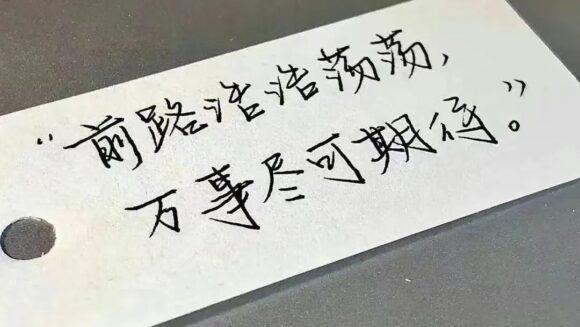 “前路浩浩荡荡,
万事尽可期待。”